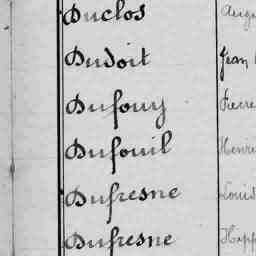 Duclos
Dudoit Jean
Dufouy Pierre
Dufouil Henri
Dufresne Louis
Dufresne